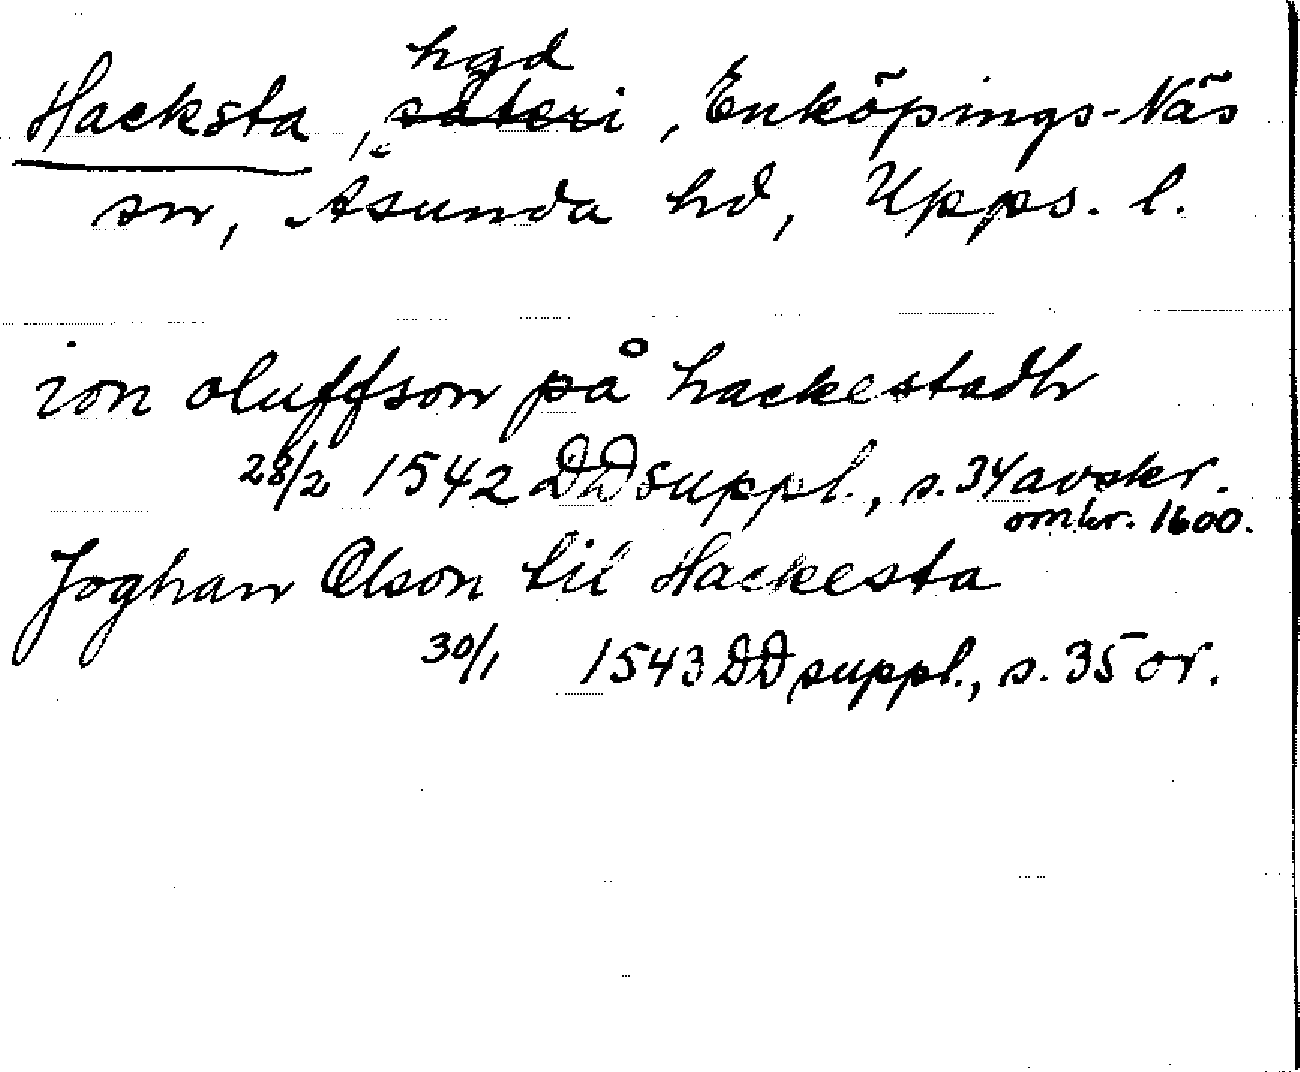 hgd
Hacksta, säteri, Enköpings-Näs
sn, Åsunda hd, Upps. l.
ion oluffson på hackestadh
28/2 1542 DD suppl., s. 34 avskr.
omkr. 1600.
Joghan Olson til Hackesta
30/1 1543 DD suppl., s. 35 or.